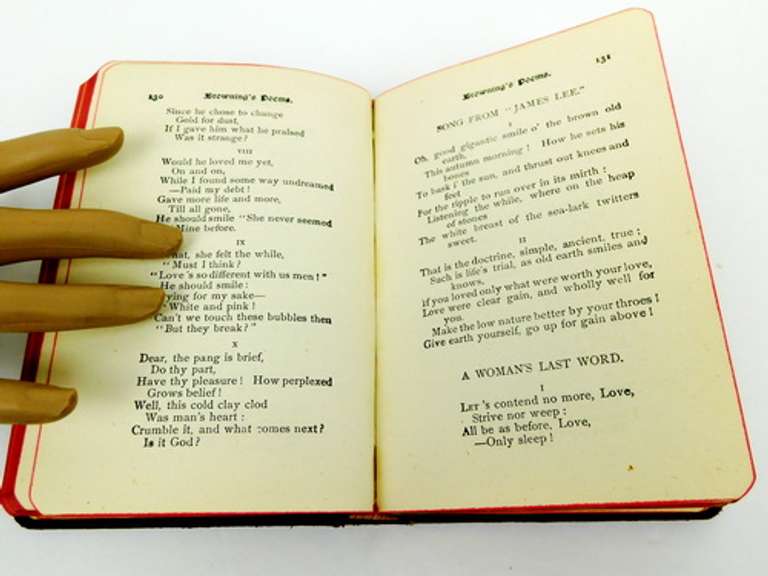 130 Browning's Poems.
Since he chose to change
Gold for dust,
If I gave him what he praised
Was it strange?
VIII
Would he loved me yet,
On and on,
While I found some way undreamed
—Paid my debt!
Gave more life and more,
Till all gone,
He should smile "She never seemed
Mine before.
IX
she felt the while,
"Must I think?
"Love's so different with us men!"
He should smile:
for my sake—
"White and pink!
Can't we touch these bubbles then
"But they break?"
X
Dear, the pang is brief,
Do thy part,
Have thy pleasure! How perplexed
Grows belief!
Well, this cold clay clod
Was man's heart:
Crumble it, and what comes next?
Is it God?
Browning's Poems. 131
SONG FROM "JAMES LEE."
I
Oh, good gigantic smile o' the brown old
earth,
This autumn morning! How he sets his
bones
To bask i' the sun, and thrust out knees and
feet
For the ripple to run over in its mirth:
Listening the while, where on the heap
of stones
The white breast of the sea-lark twitters
sweet.
II
That is the doctrine, simple, ancient, true;
Such is life's trial, as old earth smiles and
knows.
If you loved only what were worth your love,
Love were clear gain, and wholly well for
you.
Make the low nature better by your throes!
Give earth yourself, go up for gain above!
A WOMAN'S LAST WORD.
I
LET's contend no more, Love,
Strive nor weep:
All be as before, Love,
—Only sleep!